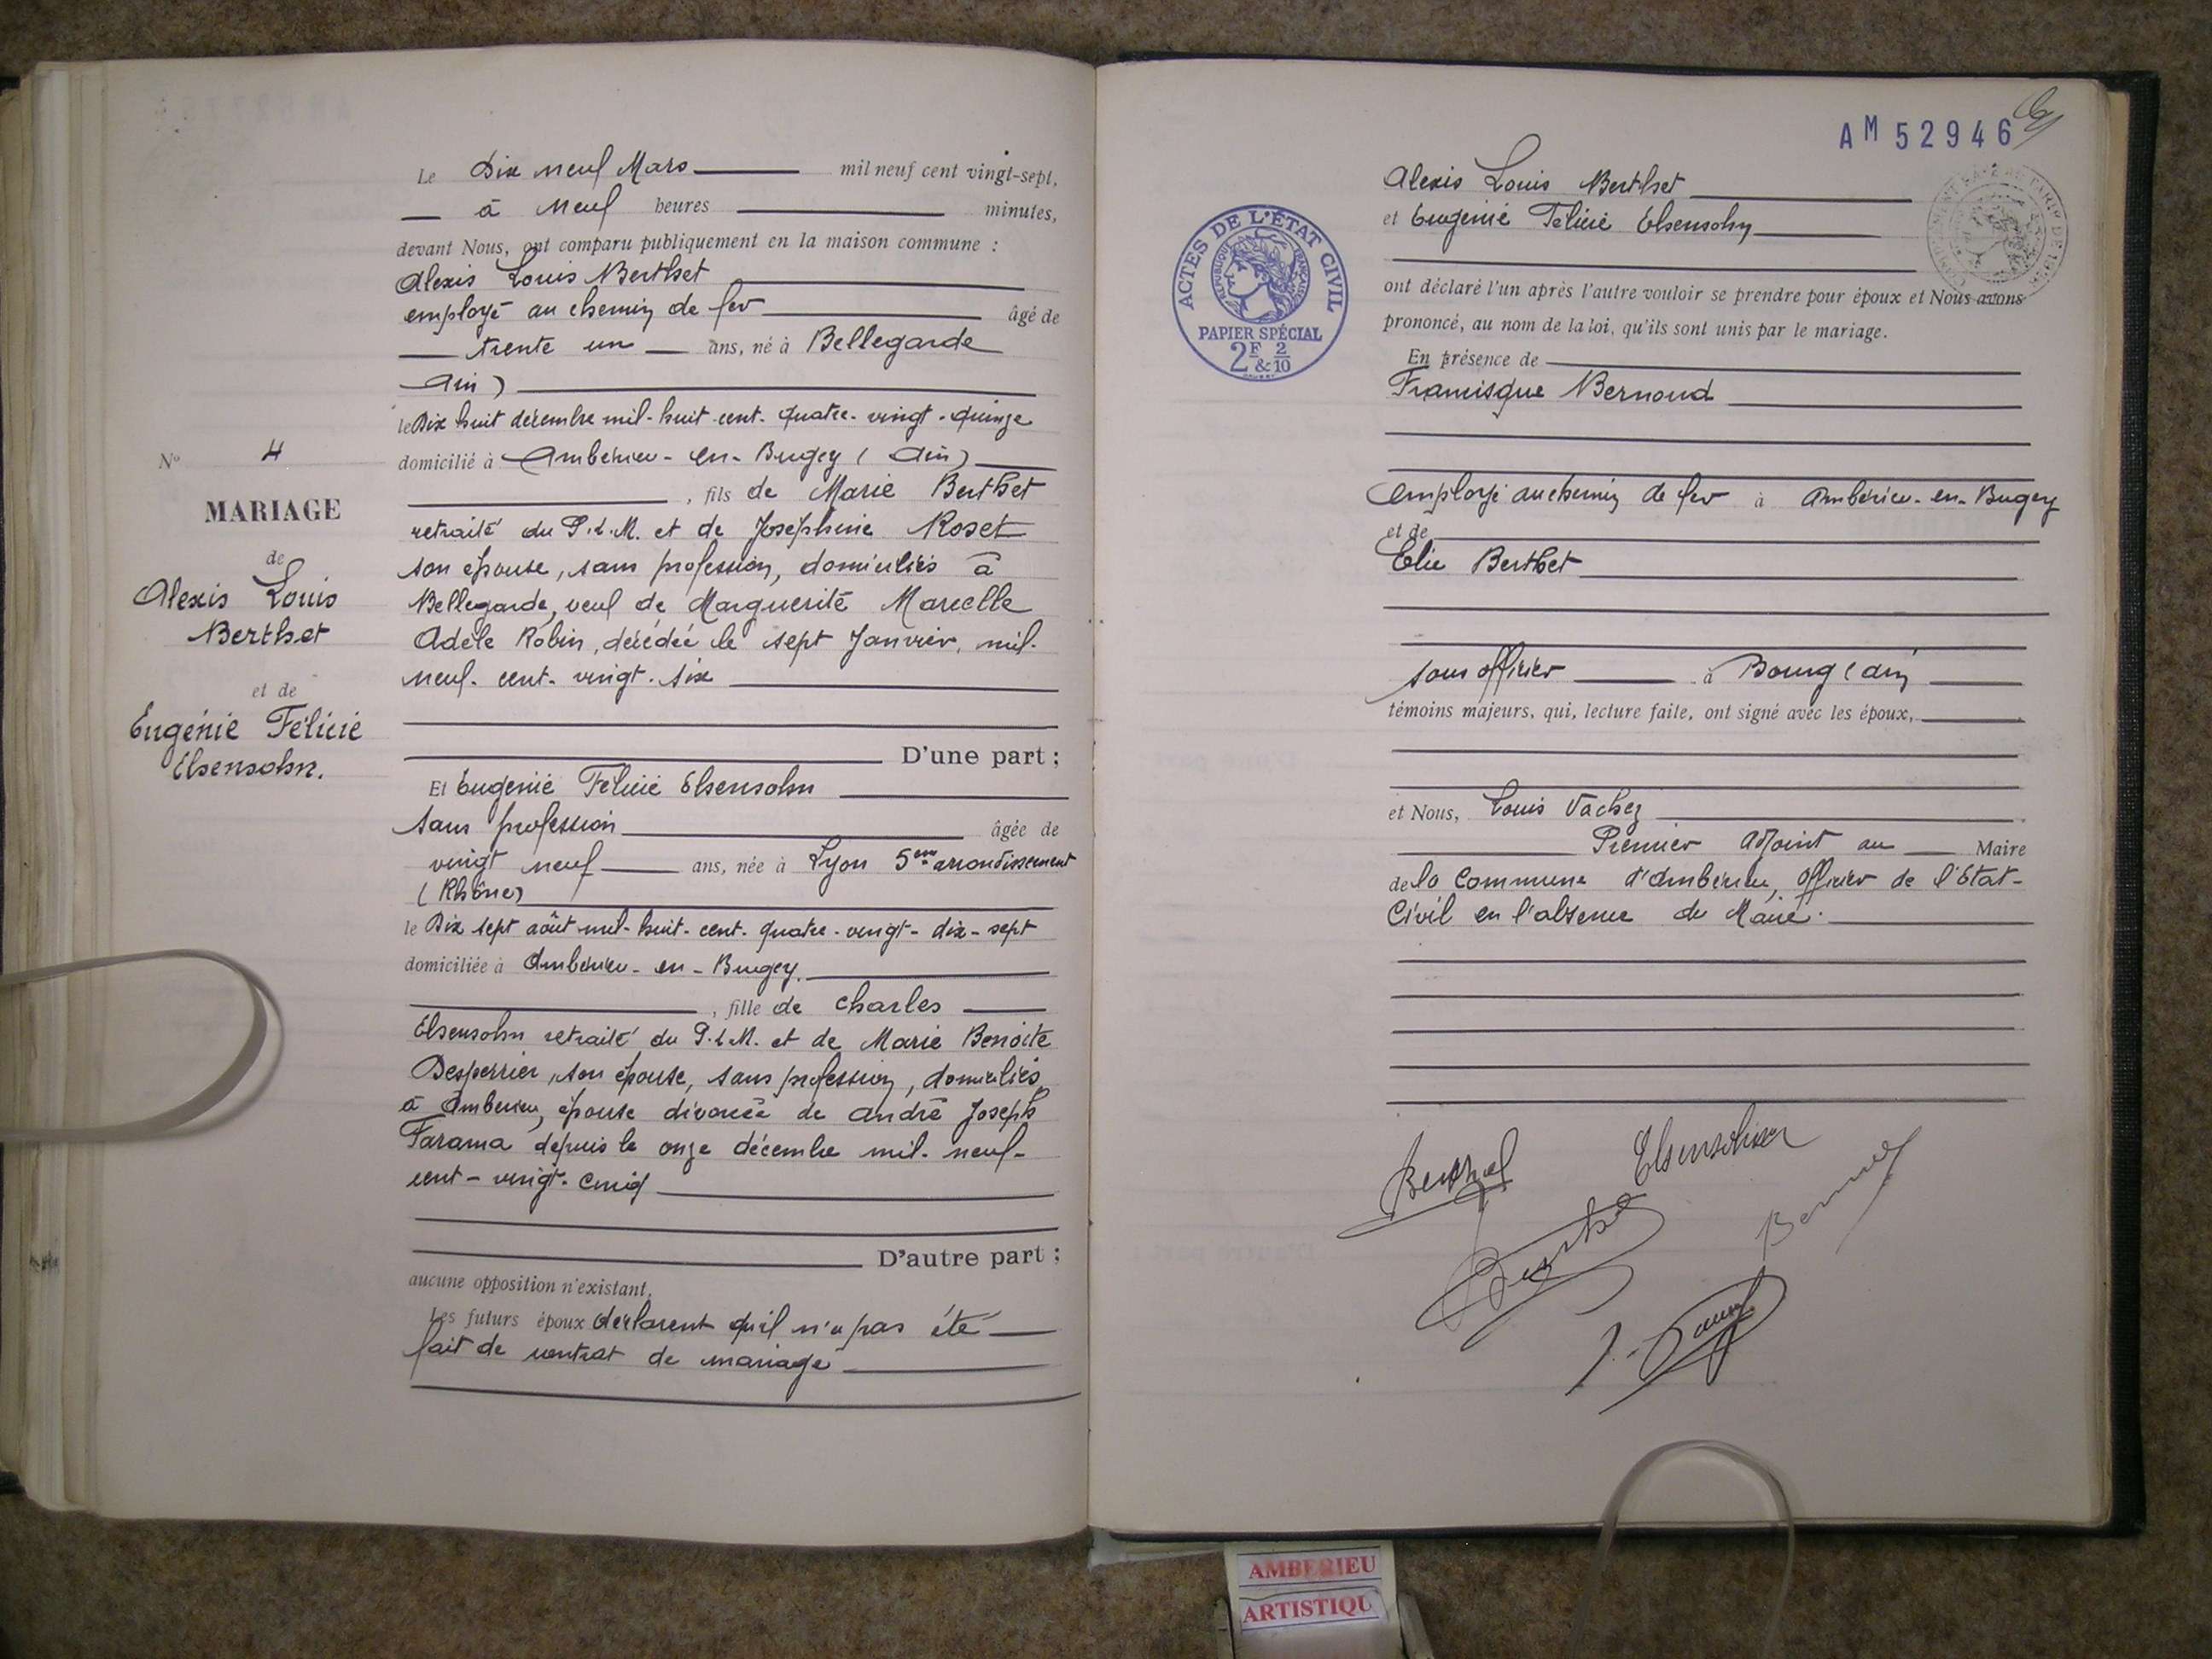 Le Dix neuf Mars mil neuf cent vingt-sept,
à Neuf heures minutes,
devant Nous, ont comparu publiquement en la maison commune :
Alexis Louis Berthet
employé au chemin de fer âgé de
trente un ans, né à Bellegarde
Ain)
le Dix huit décembre mil-huit-cent-quatre-vingt-quinze
domicilié à Ambérieu-en-Bugey (Ain)
, fils de Marie Berthet
retraité du P.L.M. et de Joséphine Roset
son épouse, sans profession, domiciliés à
Bellegarde, veuf de Marguerite Marcelle
Adèle Robin, décédée le sept Janvier, mil-
neuf-cent-vingt-six
D'une part ;
N° 4
MARIAGE
de
Alexis Louis
Berthet
et de
Eugénie Félicie
Elsensohn.
Et Eugénie Félicie Elsensohn
sans profession âgée de
vingt neuf ans, née à Lyon 5eme arrondissement
(Rhône)
le Dix sept août mil-huit-cent-quatre-vingt-dix-sept
domiciliée à Ambérieu-en-Bugey.
, fille de Charles
Elsensohn retraité du P.L.M. et de Marie Benoite
Desperrier, son épouse, sans profession, domiciliés
à Ambérieu, épouse divorcée de André Joseph
Farama depuis le onze décembre mil-neuf-
cent-vingt-cinq
D'autre part ;
aucune opposition n'existant.
Les futurs époux déclarent qu'il n'a pas été
fait de contrat de mariage
AM 52946
Alexis Louis Berthet
et Eugénie Félicie Elsensohn
ACTES DE L'ÉTAT CIVIL
RÉPUBLIQUE FRANÇAISE
PAPIER SPÉCIAL
2F & 2/10
ont déclaré l'un après l'autre vouloir se prendre pour époux et Nous avons
prononcé, au nom de la loi, qu'ils sont unis par le mariage.
En présence de
Francisque Bernoud
employé au chemin de fer à Ambérieu-en-Bugey
et de
Elie Berthet
sous officier à Bourg (Ain
témoins majeurs, qui, lecture faite, ont signé avec les époux,
et Nous, Louis Vachez
Premier Adjoint au Maire
de la Commune d'Ambérieu, Officier de l'Etat-
Civil en l'absence du Maire.
Berthet
Elsensohn
Berthet
AMBERIEU
ARTISTIQU